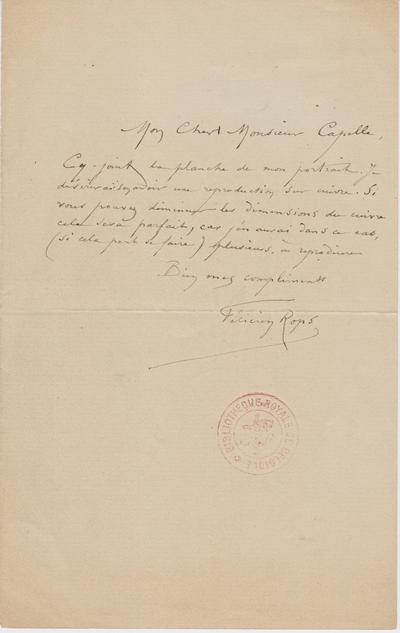 Mon Cher Monsieur Capelle,
Cy-joint la planche de mon portrait. Je
désirerais avoir une reproduction sur cuivre. Si
vous pouvez diminuer les dimensions du cuivre
cela sera parfait, car j'en aurai dans ce cas,
(si cela peut se faire) plusieurs, à reproduire
Bien mes compliments
Félicien Rops
BIBLIOTHÈQUE ROYALE DE BELGIQUE